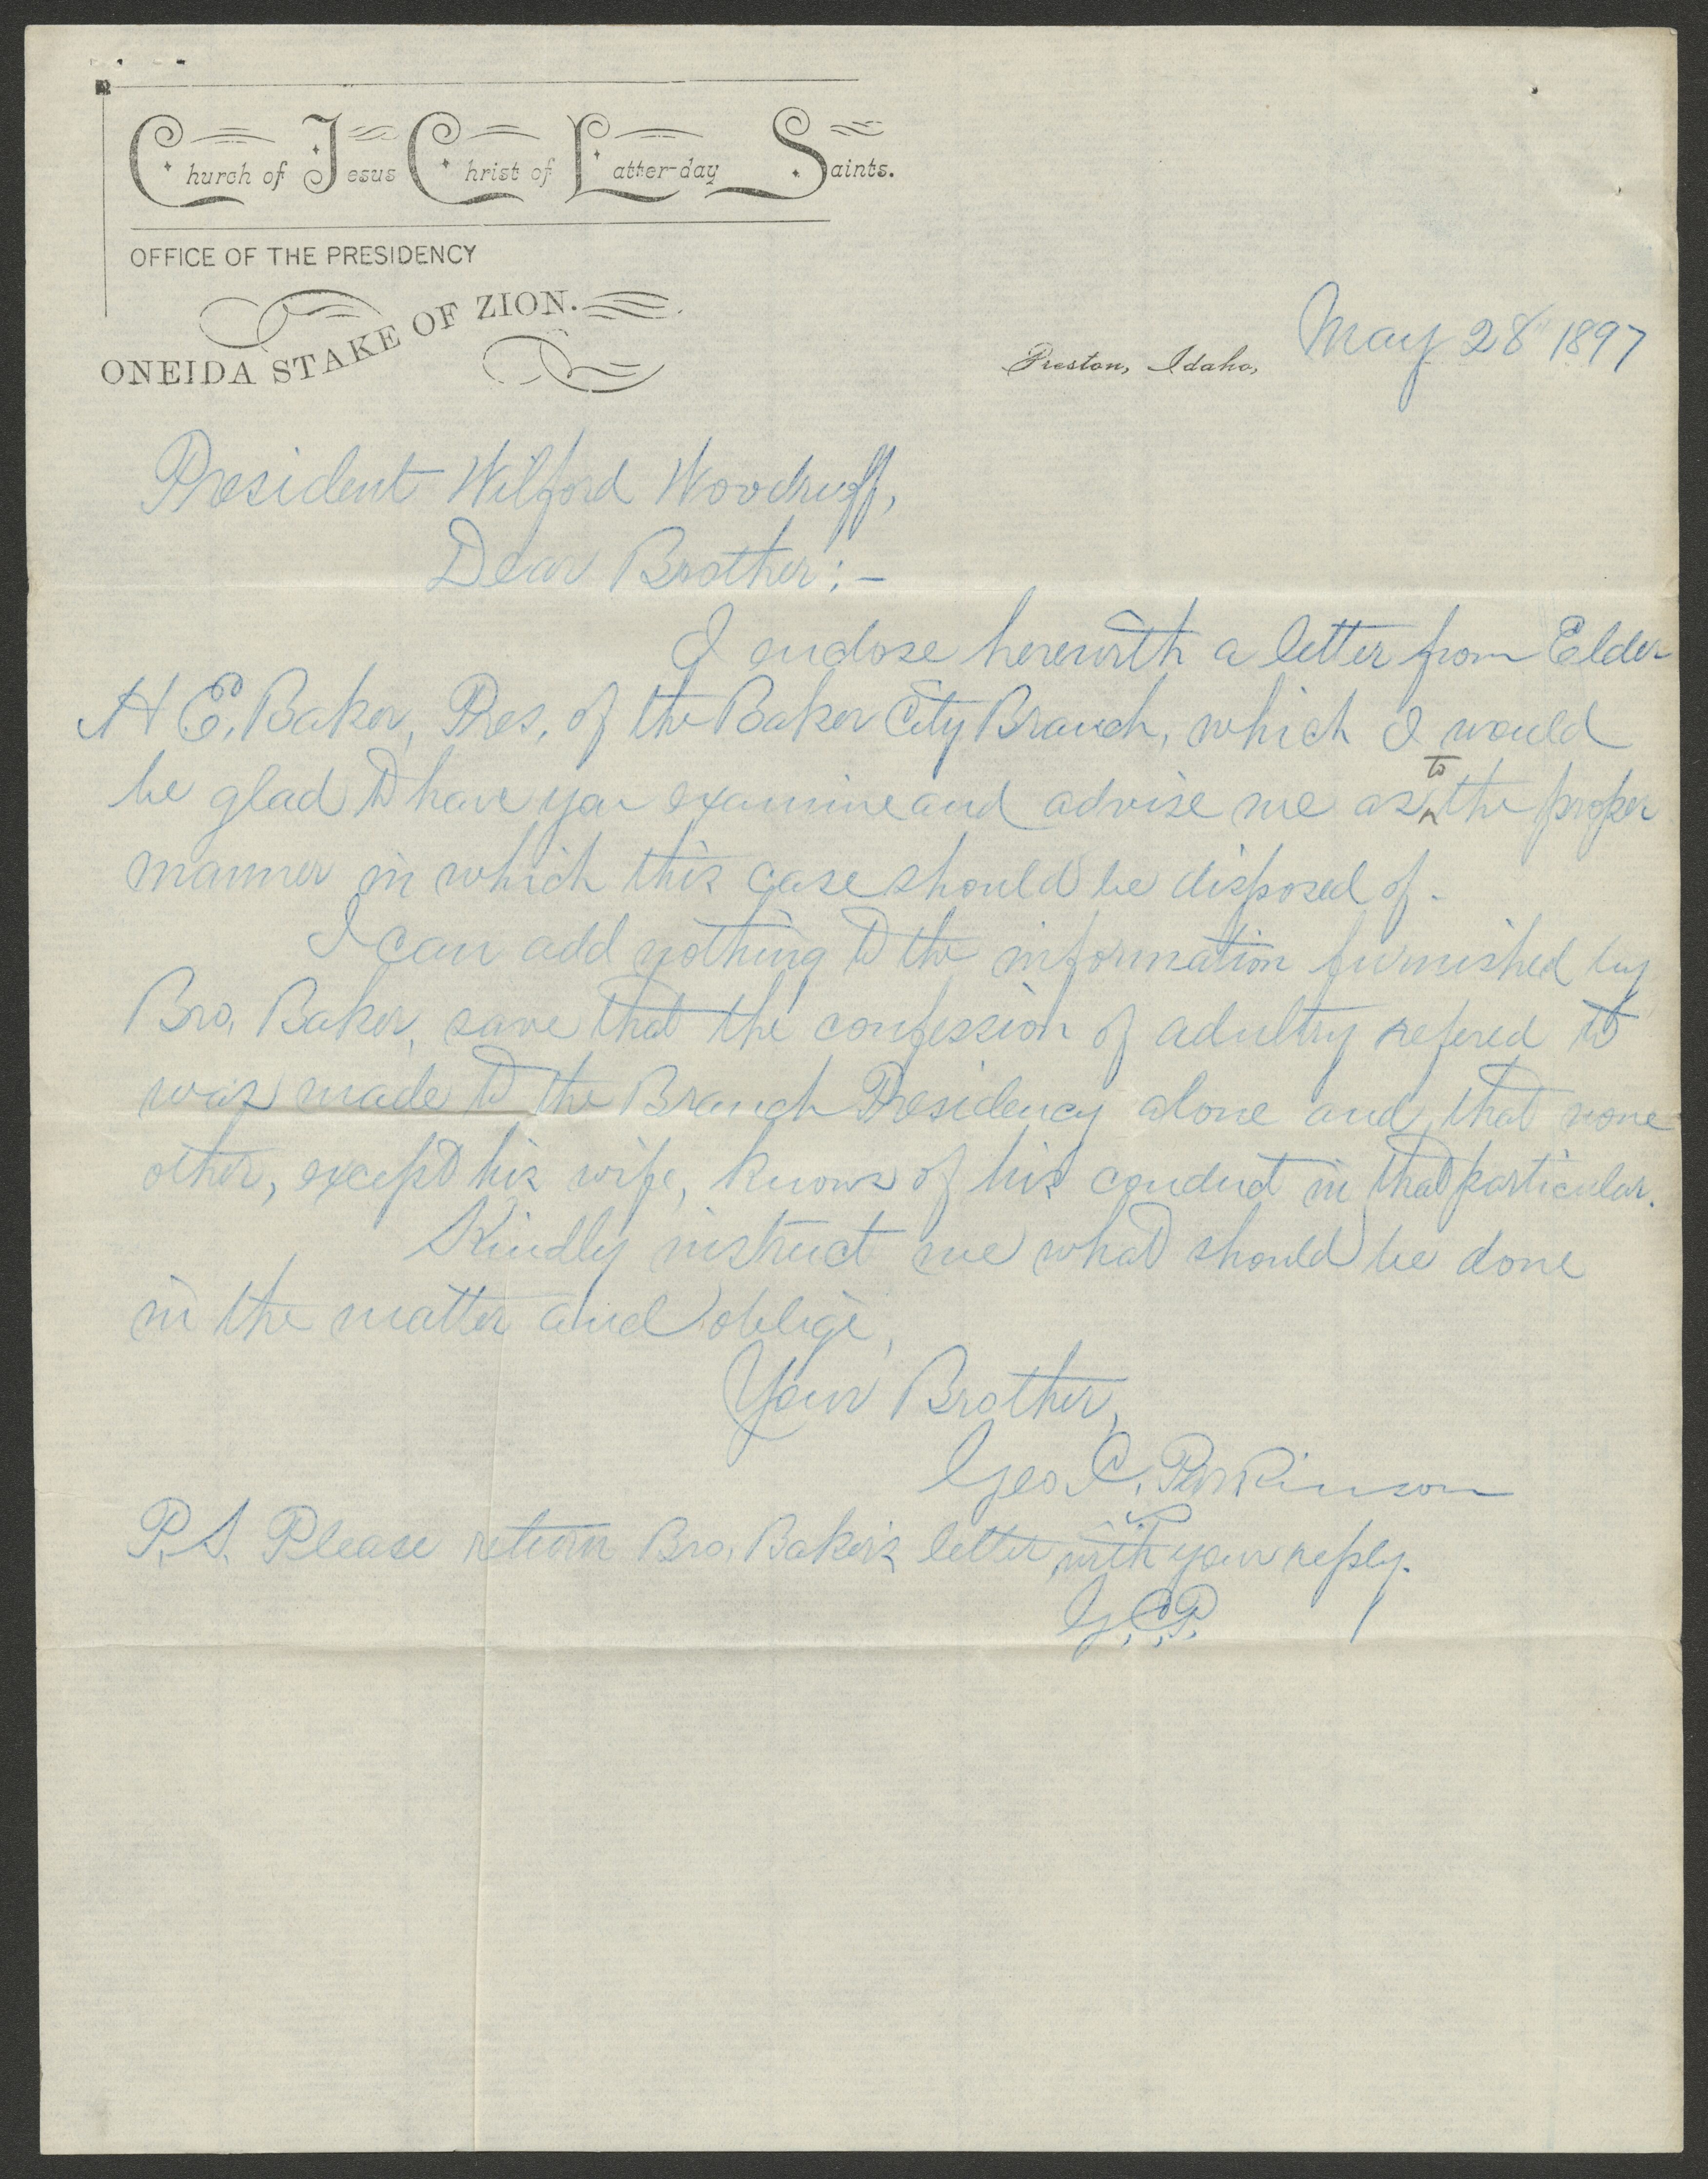 Church of Jesus Christ of Latter-day Saints.
OFFICE OF THE PRESIDENCY
ONEIDA STAKE OF ZION.
Preston, Idaho, May 28" 1897
President Wilford Woodruff,
Dear Brother:—
I enclose herewith a letter from Elder
H E. Baker, Pres. of the Baker City Branch, which I would
be glad to have you examine and advise me as to the proper
manner in which this case should be disposed of.
I can add nothing to the information furnished by
Bro. Baker, save that the confession of adultry refered to
was made to the Branch Presidency alone and that none
other, except his wife, knows of his conduct in that particular.
Kindly instruct me what should be done
in the matter and oblige,
Your Brother,
Geo. C. Parkinson
P.S. Please return Bro. Baker's letter with your reply.
G.C.P.